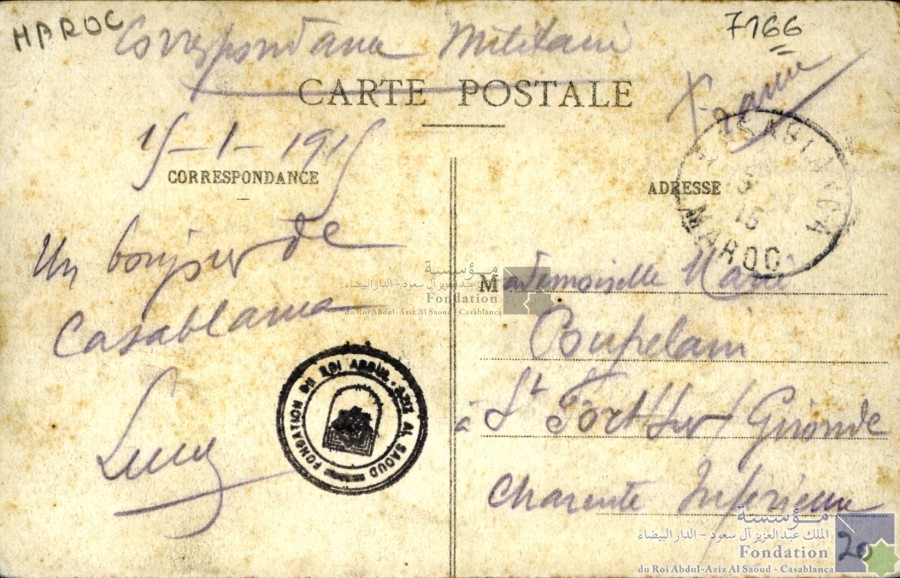 MAROC
7166
Correspondance Militaire
France
CARTE POSTALE
15-1-1915
CORRESPONDANCE
ADRESSE
CASABLANCA
15
MAROC
Un bonjour de
Casablanca
Mademoiselle Marie
à St Fort sur Gironde
Charente Inférieure
FONDATION DU ROI ABDUL-AZIZ AL SAOUD
مؤسسة
الملك عبد العزيز آل سعود - الدار البيضاء
Fondation
du Roi Abdul-Aziz Al Saoud - Casablanca
مؤسسة
الملك عبد العزيز آل سعود - الدار البيضاء
Fondation
du Roi Abdul-Aziz Al Saoud - Casablanca
20